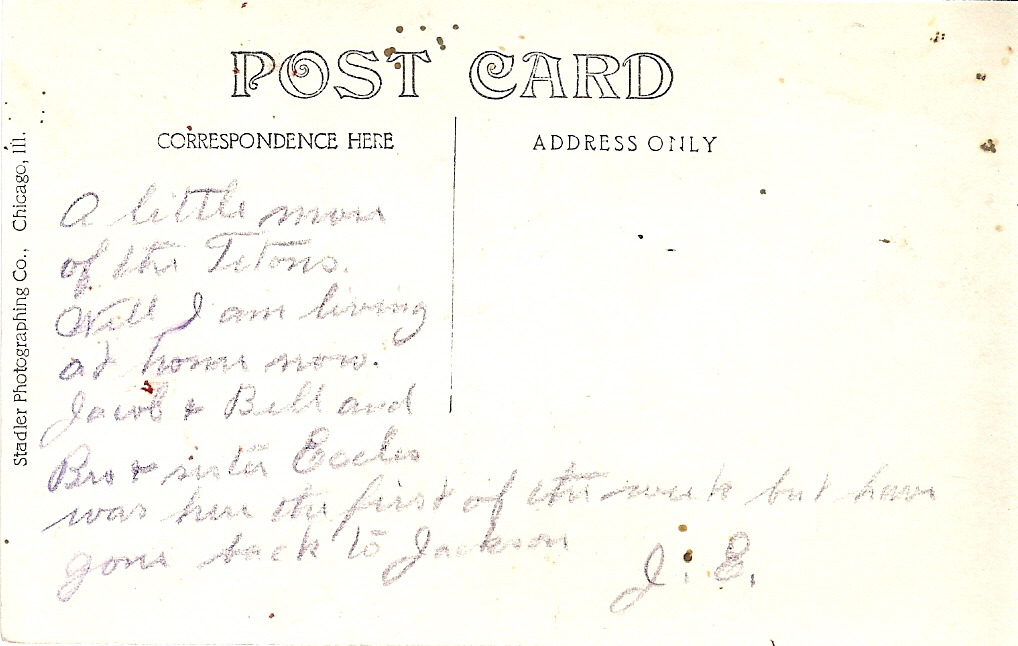 POST CARD
CORRESPONDENCE HERE
ADDRESS ONLY
Stadler Photographing Co., Chicago, Ill.
A little more
of the Tetons.
Well I am living
at home now.
Jacob & Bell and
Bro & sister Eccles
was here the first of the week but have
gone back to Jackson
J. E.